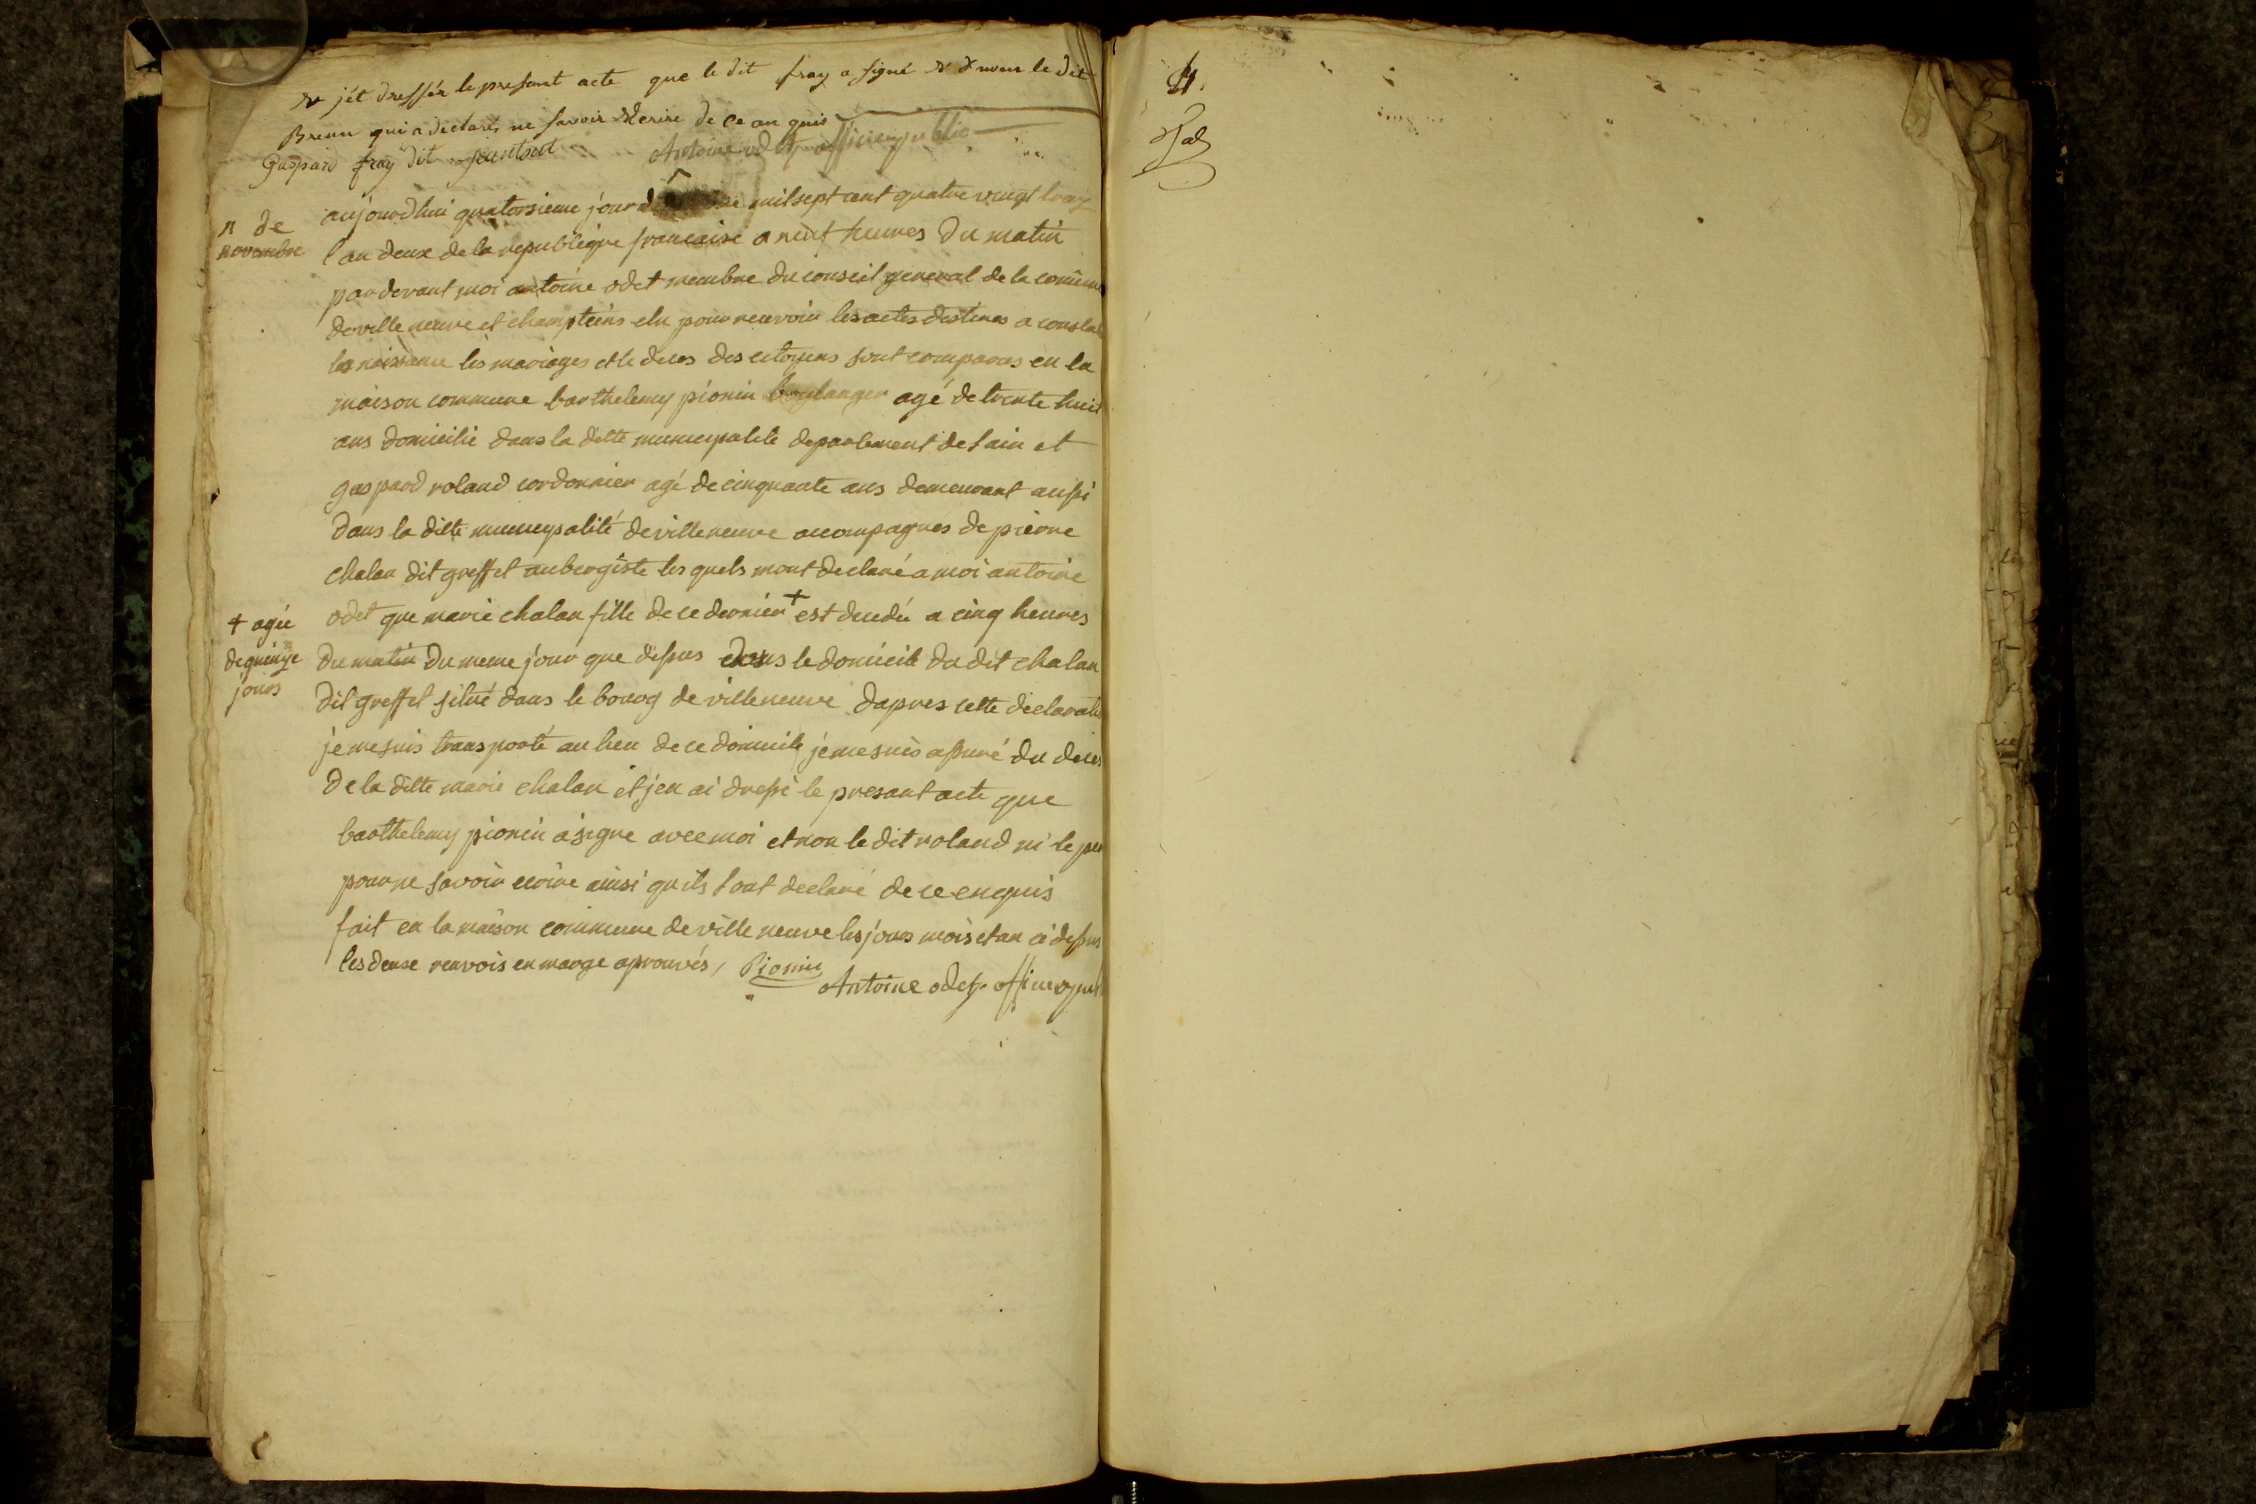 & jét dressér le presant acte que le dit fray a signé & & nom le dit
Breun qui a déclarés ne savoir Décrire de ce an quis
Gaspard fray dit Antoine odet officier public
aujourdhui quatorsieme jour mil sept cent quatre vingt traiz
n de
novembre
l'an deux de la republique francaise a neuf heures du matin
par devant moi antoine odet membre du conseil general de la comune
de ville neuve et champteins elu pour recevoir les actes destines a constat
les naissance les mariages et le deces des citoyens sont comparus en la
maison commune barthelemy pionin boulanger agé de trente huit
ans domicilié dans la ditte municypalité departement de lain et
gaspard roland cordonnier agé de cinquante ans demeurant aussi
dans la ditte municypalité de villeneuve accompagnes de pierre
chalan dit greffet aubergiste les quels mont declaré a moi antoine
odet que marie chalan fille de ce dernier + est decedée a cinq heures
+ agée
de quinze
jours
du matin du meme jour que dessus dans le domicile du dit chalan
dit greffet situé dans le bourg de villeneuve dapres cette declaratio
je me suis transporté au lieu de ce domicile je me suis assuré du deces
de la ditte marie chalan et jen ai dressé le presant acte que
barthelemy pionin a signe avec moi et non le dit roland ni le per
pour ne savoir ecrire ainsi quils lont declaré de ce enquis
fait en la maison commune de ville neuve les jours mois et an ci dessus
les deux renvois en marge aprouvés, Pionin
Antoine odet officier publ